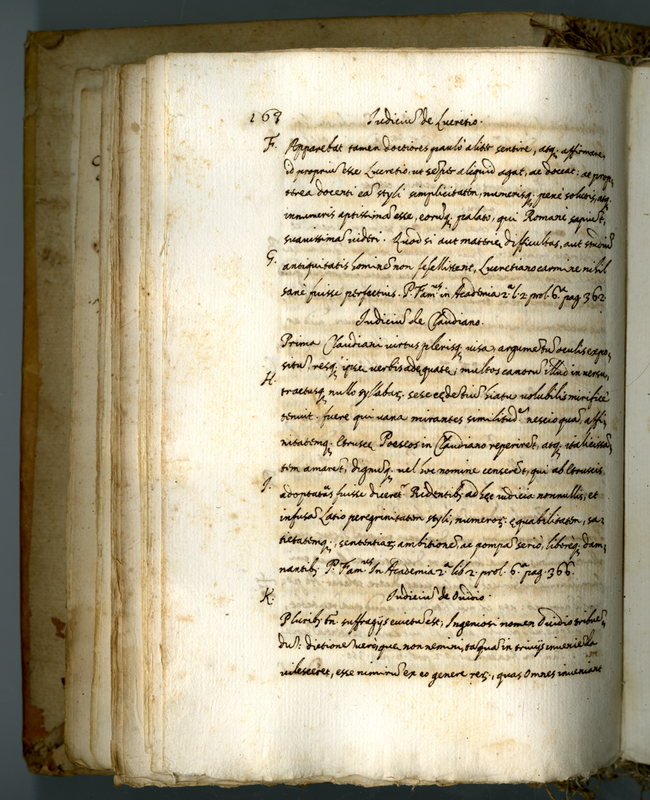 163 Iudiciū de Lucretio.
F. Apparebat tamen doctiores paulò aliter sentire, atq; affirmare,
id propriū esse Lucretio: ut semper aliquid agat, ac doceat: ac prop,
tterea docenti eā styli simplicitatem, numerisq; penè solutis, atq;
innumeris aptissimā esse, eorūq; palato, qui Romanè sapiūt,
suavissimā videri. Quod si aut materiæ difficultas, aut studiū
G. antiquitatis hominē non fefellissent, Lucretiano carmine nihil
sanè fuisse perfectius. P. Fam. in Academia 2.ª l. 2. prol. 6.ª pag. 362.
Iudiciū de Claudiano.
Prima Claudiani virtus plerisq; visa, argumētū oculis expo,
situ, resq; ipsa verbis adæquatę; multos canorū illud in versu,
H. tractusq; nullo syllabaꝝ sese hiatu volubilis mirificè
tenuit. fuere qui vana mirantes similitud. nescio quā affi,
nitatemq; Etruscę Poeseos in Claudiano reperirēt, atq; italicissā,
tem amarēt, dignūq; vel hoc nomine censerēt, qui ab Etruscis
I. adoptatus fuisse diceret. Ridentibꝫ ad hęc iudicia nonnullis, et
infusā Latio peregrinitatem styli, numeroꝝ ęquabilitatem, sa,
tietatemq;, sententiaꝝ ambitionē, ac pompā seriò, liberèq; dam,
nantibꝫ. P. Fam. In Academia 2.ª lib. 2. prol. 6.ª pag. 366.
K. Iudiciū de Ouidio.
Pluribꝫ tn suffragijs euictū est, Ingeniosi nomen Ouidio tribuē,
dū: dictione verò, quę non nemini, tāquā in triuijs inuenienda
vilesceret, esse nimirū ex eo genere reꝝ, quas Omnes inueniant